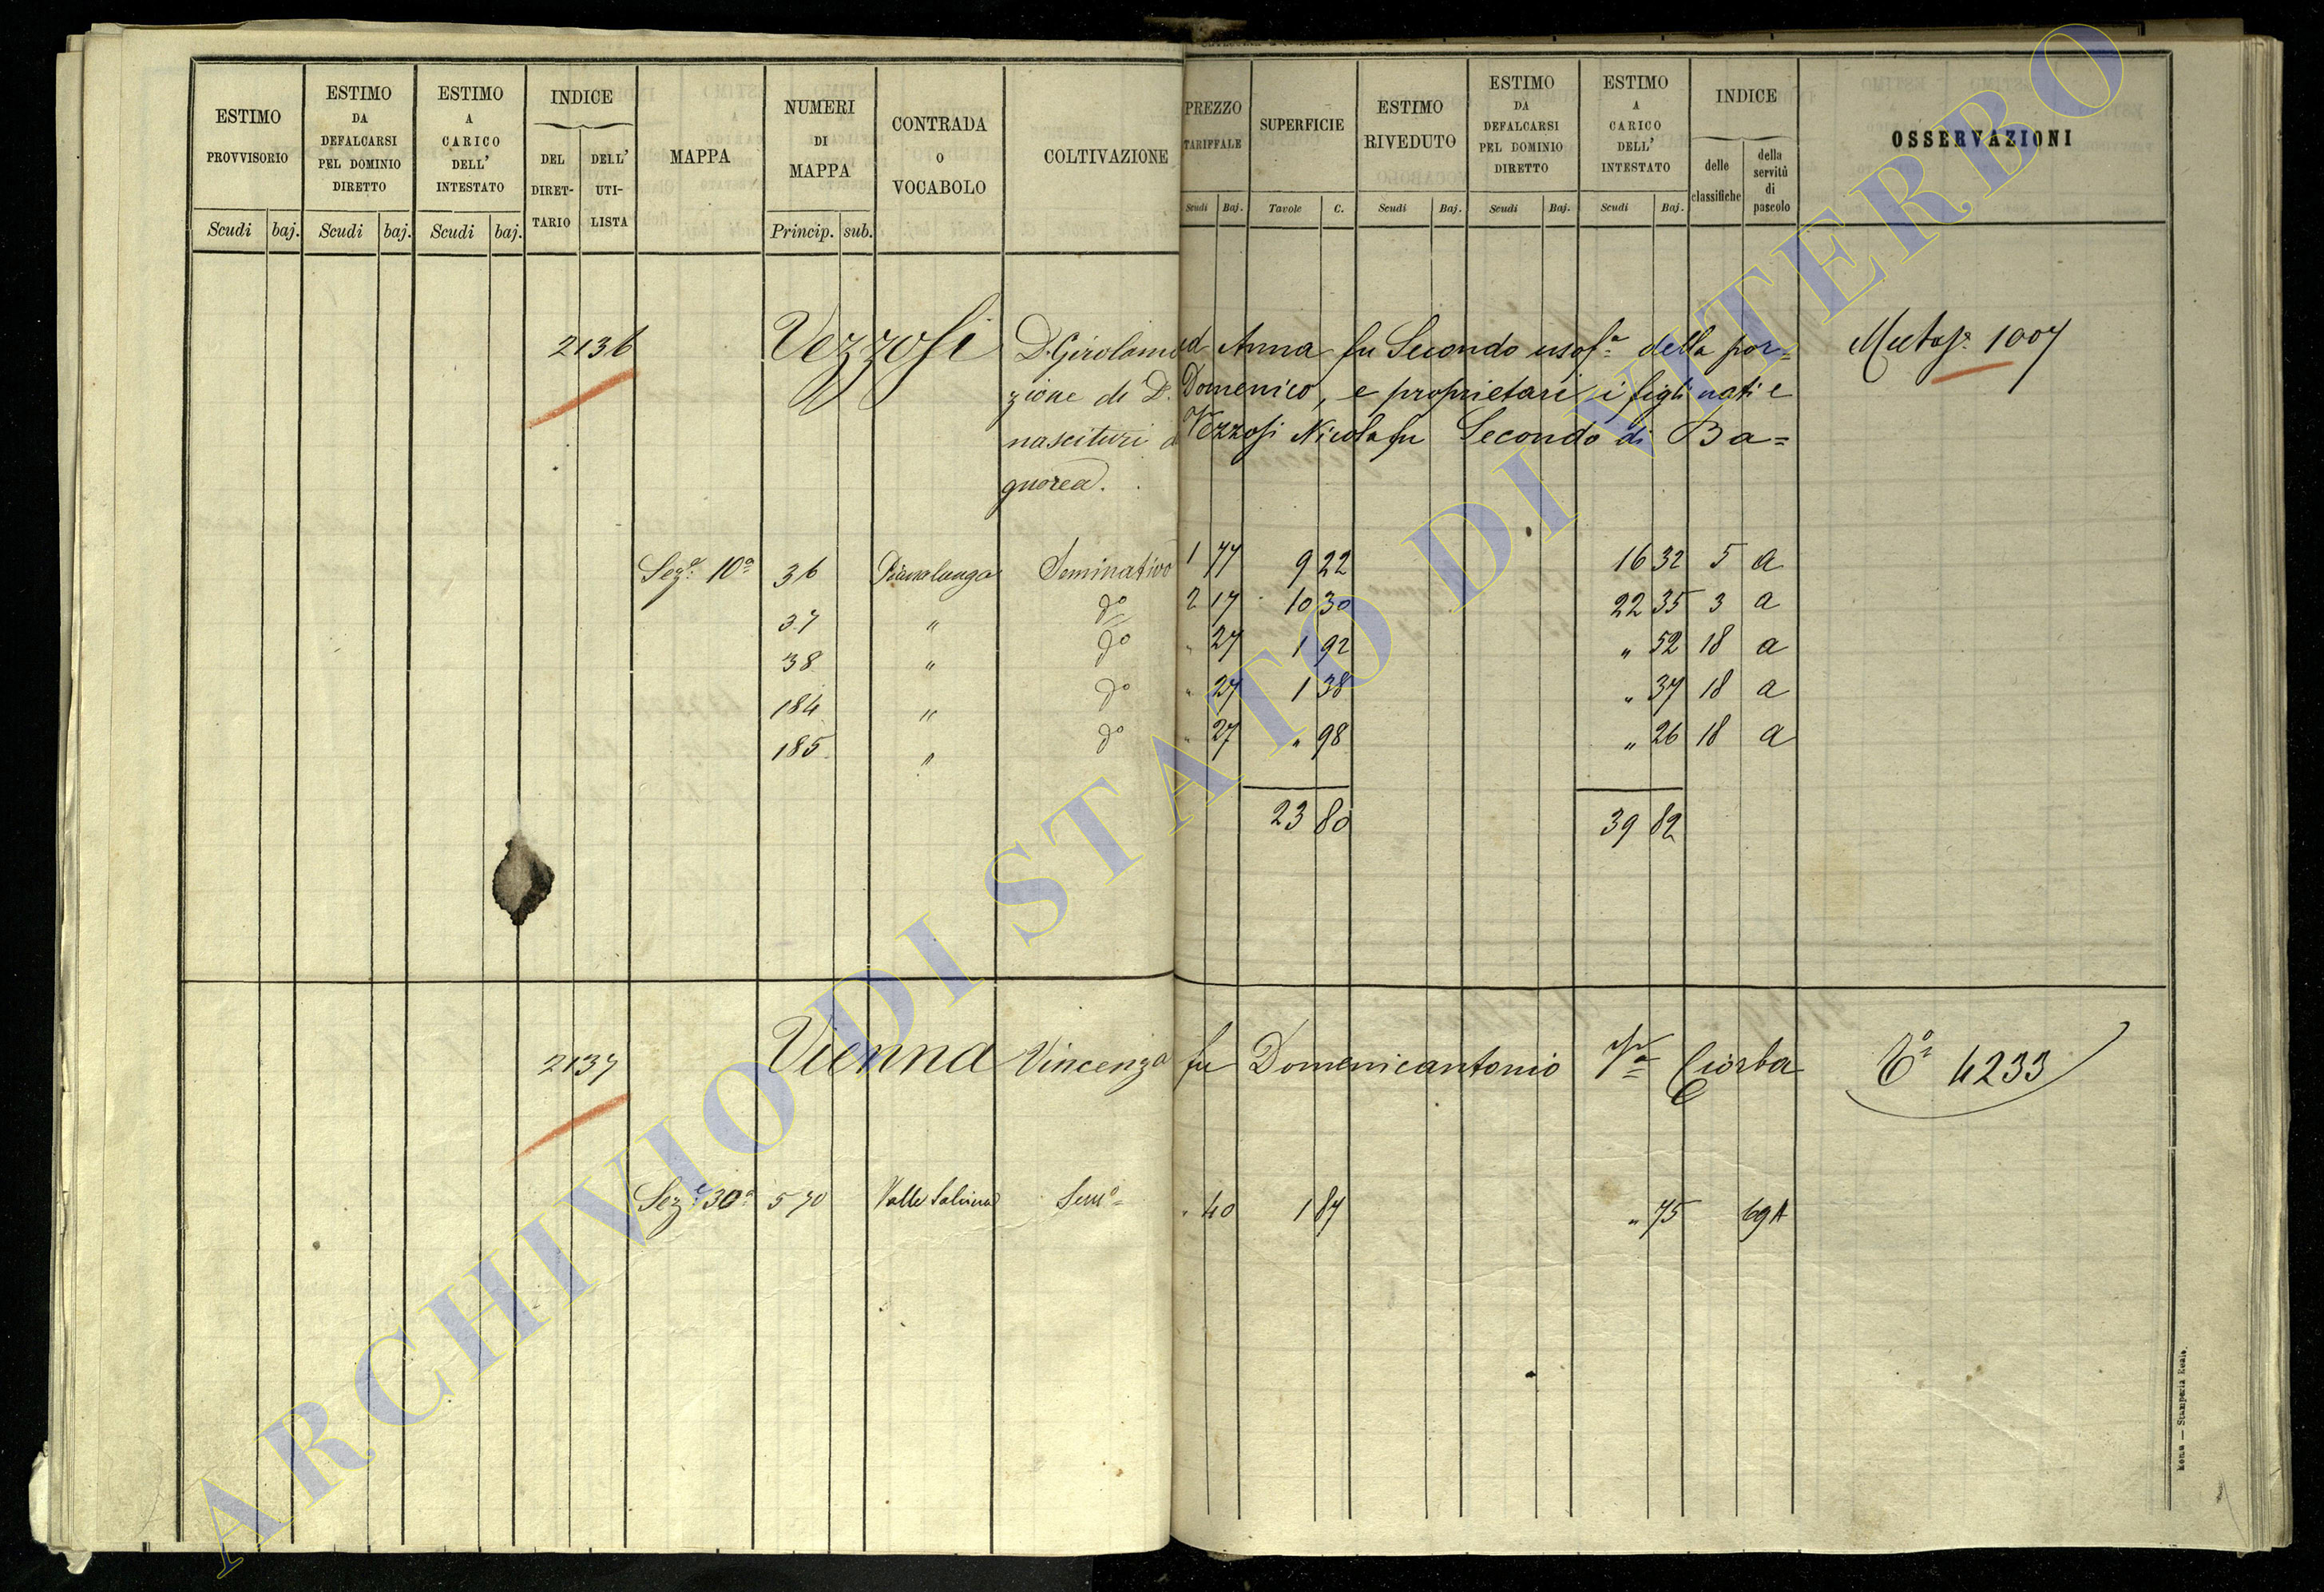 ESTIMO PROVVISORIO
ESTIMO DA DEFALCARSI PEL DOMINIO DIRETTO
ESTIMO A CARICO DELL' INTESTATO
INDICE
DEL DIRET-TARIO
DELL' UTI-LISTA
MAPPA
NUMERI DI MAPPA
CONTRADA O VOCABOLO
COLTIVAZIONE
PREZZO TARIFFALE
SUPERFICIE
ESTIMO RIVEDUTO
ESTIMO DA DEFALCARSI PEL DOMINIO DIRETTO
ESTIMO A CARICO DELL' INTESTATO
INDICE
delle classifiche
della servitù di pascolo
OSSERVAZIONI
Scudi baj. Scudi baj. Scudi baj. Princip. sub. Scudi Baj. Tavole C. Scudi Baj. Scudi Baj. Scudi Baj.
2136 Vezzosi D. Girolamo ed Anna fu Secondo usofa. della por= Mutaje. 1007
zione di D. Domenico, e proprietari i figli nati e
nascituri da Vezzosi Nicola fu Secondo di Ba=
gnorea.
Seze. 10a 36 Pianalunga Seminativo 1 77 9 22 16 32 5 a
37 " do 2 17 10 30 22 35 3 a
38 " do " 27 1 92 " 52 18 a
184 " do " 27 1 38 " 37 18 a
185 " do " 27 " 98 " 26 18 a
23 80 39 82
2137 Vienna Vincenza fu Domenicantonio Va Ciorba To 4233
Seze. 30a 570 Valle Semo " 40 1 87 " 75 69 A
Roma — Stamperia Reale.
ARCHIVIO DI STATO DI VITERBO